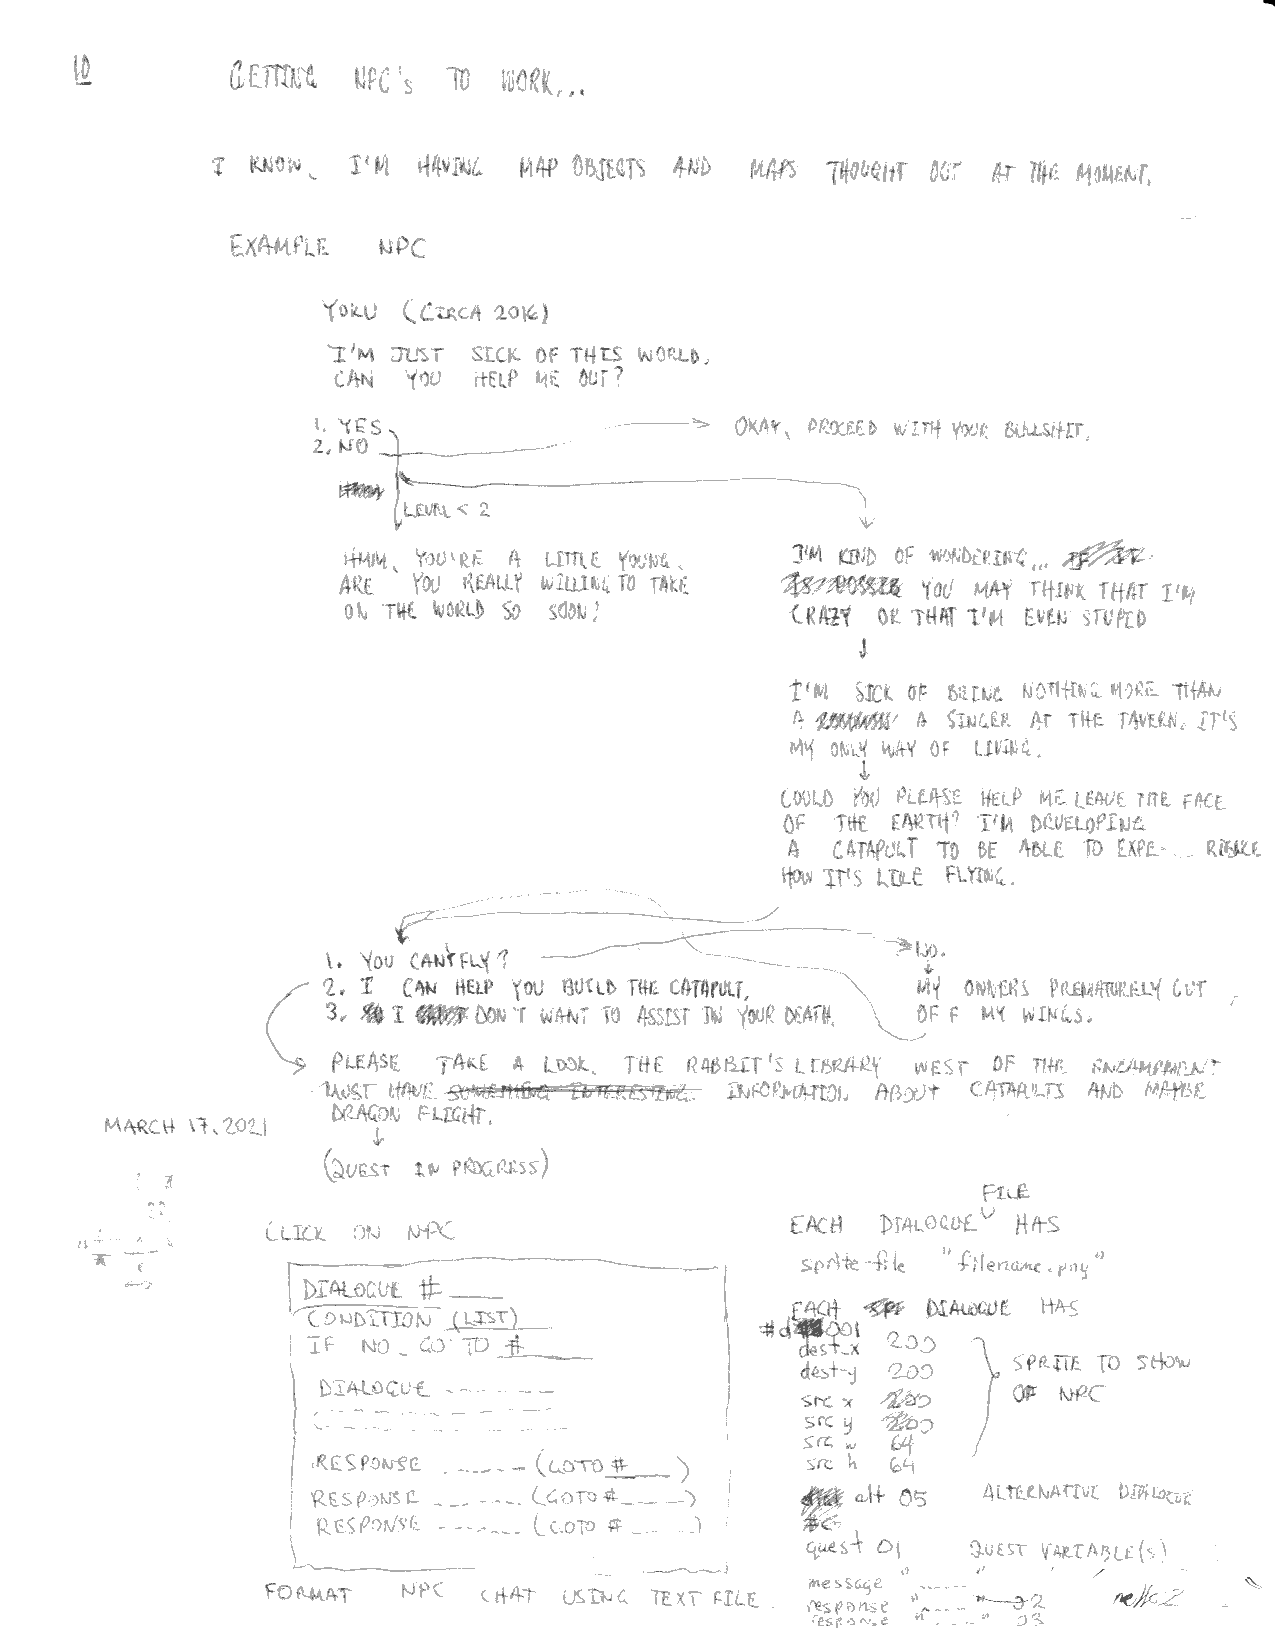 10
GETTING NPC's TO WORK...
I KNOW, I'M HAVING MAP OBJECTS AND MAPS THOUGHT OUT AT THE MOMENT.
EXAMPLE NPC
YOKU (CIRCA 2016)
I'M JUST SICK OF THIS WORLD,
CAN YOU HELP ME OUT?
1. YES
2. NO
OKAY, PROCEED WITH YOUR BULLSHIT.
LEVEL < 2
HMM, YOU'RE A LITTLE YOUNG.
ARE YOU REALLY WILLING TO TAKE
ON THE WORLD SO SOON?
I'M KIND OF WONDERING... IF IT
IS POSSIB YOU MAY THINK THAT I'M
CRAZY OR THAT I'M EVEN STUPID
I'M SICK OF BEING NOTHING MORE THAN
A A SINGER AT THE TAVERN. IT'S
MY ONLY WAY OF LIVING.
COULD YOU PLEASE HELP ME LEAVE THE FACE
OF THE EARTH? I'M DEVELOPING
A CATAPULT TO BE ABLE TO EXPE-... RIENCE
HOW IT'S LIKE FLYING.
1. YOU CAN'T FLY?
2. I CAN HELP YOU BUILD THE CATAPULT.
3. I DON'T WANT TO ASSIST IN YOUR DEATH.
NO.
MY OWNERS PREMATURELY CUT
OFF MY WINGS.
PLEASE TAKE A LOOK. THE RABBIT'S LIBRARY WEST OF THE ENCAMPMENT
MUST HAVE SOMETHING INTERESTING. INFORMATION ABOUT CATAPULTS AND MAYBE
DRAGON FLIGHT.
MARCH 17, 2021
(QUEST IN PROGRESS)
CLICK ON NPC
DIALOGUE # ____
CONDITION (LIST)
IF NO, GO TO # ____
DIALOGUE -------
RESPONSE ------ (GOTO # ____)
RESPONSE ------ (GOTO # ____)
RESPONSE ------ (GOTO # ____)
FORMAT NPC CHAT USING TEXT FILE.
FILE
EACH DIALOGUE HAS
sprite-file "filename.png"
EACH DIALOGUE HAS
#d 001
dest_x 200
dest-y 200
src x 200
src y 200
src w 64
src h 64
SPRITE TO SHOW
OF NPC
alt 05 ALTERNATIVE DIALOGUE
quest 01 QUEST VARIABLE(s)
message "------"
response "------" #—02
response "------" 03